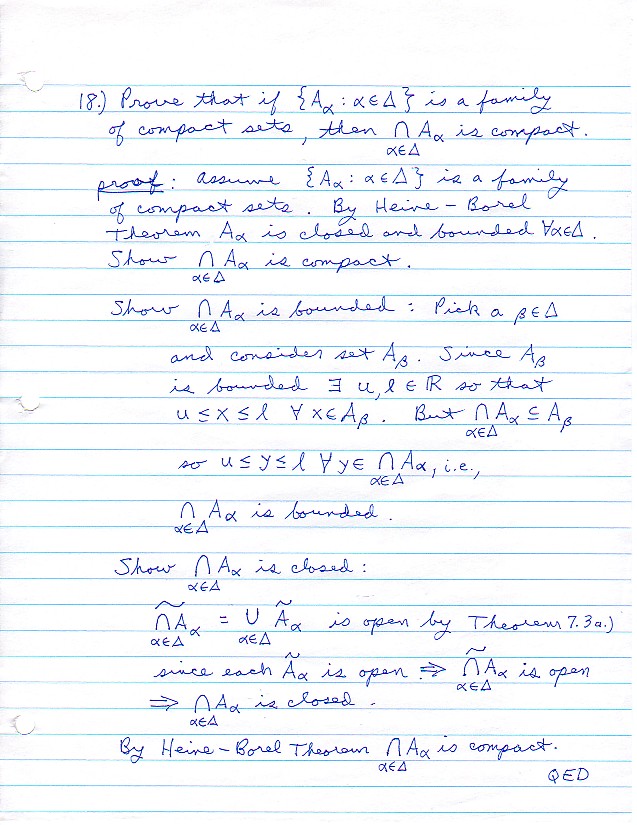 18.) Prove that if {A_α : α∈Δ} is a family
of compact sets, then ∩_{α∈Δ} A_α is compact.
proof: assume {A_α : α∈Δ} is a family
of compact sets. By Heine-Borel
Theorem A_α is closed and bounded ∀α∈Δ.
Show ∩_{α∈Δ} A_α is compact.
Show ∩_{α∈Δ} A_α is bounded : Pick a β∈Δ
and consider set A_β. Since A_β
is bounded ∃ u, l ∈ ℝ so that
u ≤ x ≤ l ∀ x∈A_β. But ∩_{α∈Δ} A_α ⊆ A_β
so u ≤ y ≤ l ∀ y∈ ∩_{α∈Δ} A_α, i.e.,
∩_{α∈Δ} A_α is bounded.
Show ∩_{α∈Δ} A_α is closed :
\widetilde{∩_{α∈Δ} A_α} = ∪_{α∈Δ} Ã_α is open by Theorem 7.3a.)
since each Ã_α is open. ⇒ \widetilde{∩_{α∈Δ} A_α} is open
⇒ ∩_{α∈Δ} A_α is closed.
By Heine-Borel Theorem ∩_{α∈Δ} A_α is compact.
QED